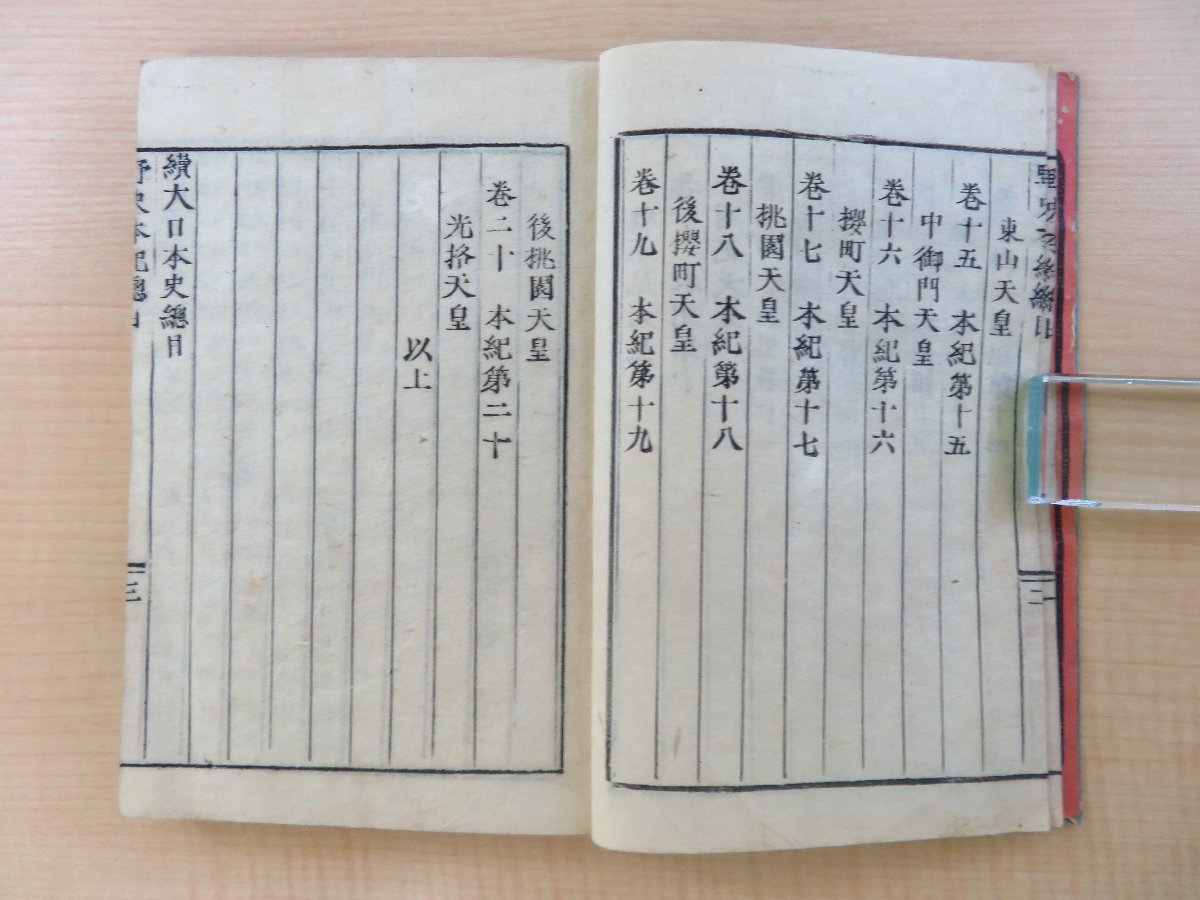 東山天皇
卷十五　本紀第十五
中御門天皇
卷十六　本紀第十六
櫻町天皇
卷十七　本紀第十七
桃園天皇
卷十八　本紀第十八
後櫻町天皇
卷十九　本紀第十九
後桃園天皇
卷二十　本紀第二十
光格天皇
以上
續大日本史總目
野史本紀總目
三